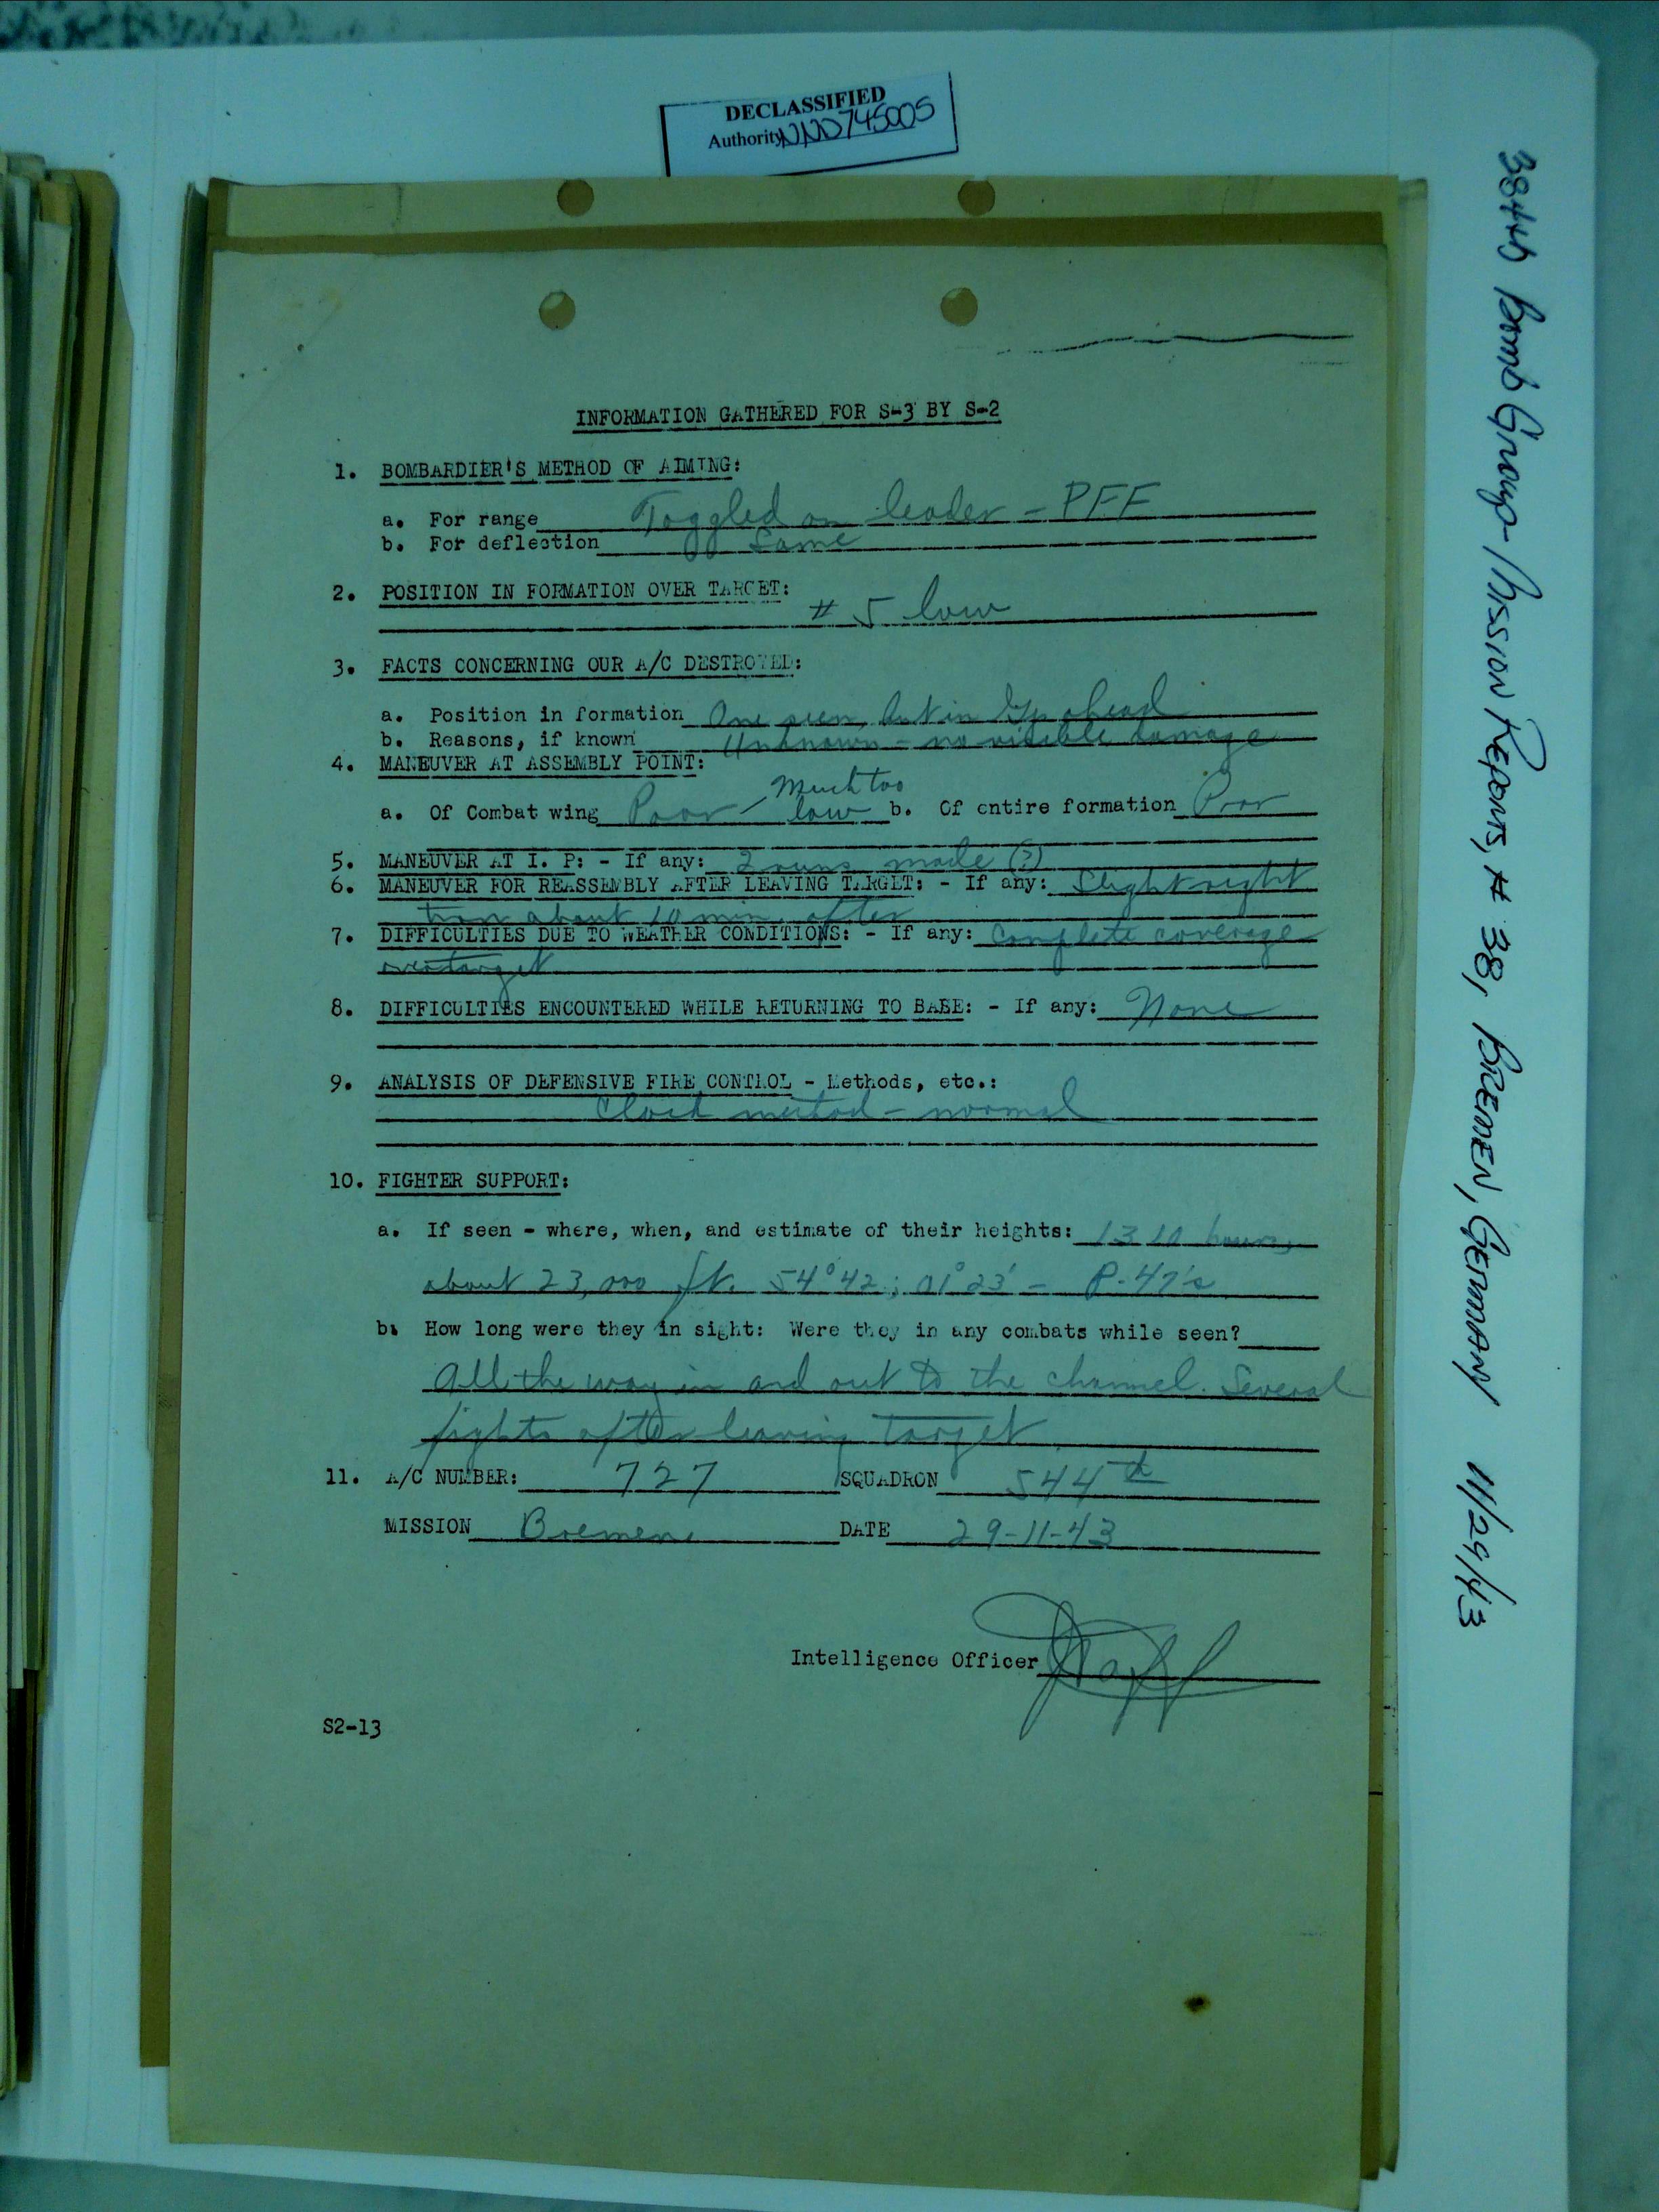 DECLASSIFIED
Authority NND745005
INFORMATION GATHERED FOR S-3 BY S-2
1. BOMBARDIER'S METHOD OF AIMING:
a. For range Toggled on leader - PFF
b. For deflection Same
2. POSITION IN FORMATION OVER TARGET:
# 5 low
3. FACTS CONCERNING OUR A/C DESTROYED:
a. Position in formation One seen, but in Gp ahead
b. Reasons, if known Unknown - no visible damage
4. MANEUVER AT ASSEMBLY POINT:
a. Of Combat wing Poor - Much too low b. Of entire formation Poor
5. MANEUVER AT I. P: - If any: 2 runs made (?)
6. MANEUVER FOR REASSEMBLY AFTER LEAVING TARGET: - If any: Slight right
about 10 min. after
7. DIFFICULTIES DUE TO WEATHER CONDITIONS: - If any: Complete coverage
over target
8. DIFFICULTIES ENCOUNTERED WHILE RETURNING TO BASE: - If any: None
9. ANALYSIS OF DEFENSIVE FIRE CONTROL - Methods, etc.:
Clock method - normal
10. FIGHTER SUPPORT:
a. If seen - where, when, and estimate of their heights: 1310 hours,
about 23,000 ft. 54°42; 01°23' - P-47's
b. How long were they in sight: Were they in any combats while seen?
All the way in and out to the channel. Several
fights after leaving target
11. A/C NUMBER: 727 SQUADRON 544th
MISSION Bremen DATE 29-11-43
Intelligence Officer
S2-13
384th Bomb Group - Mission Reports, # 38, BREMEN, GERMANY 11/29/43